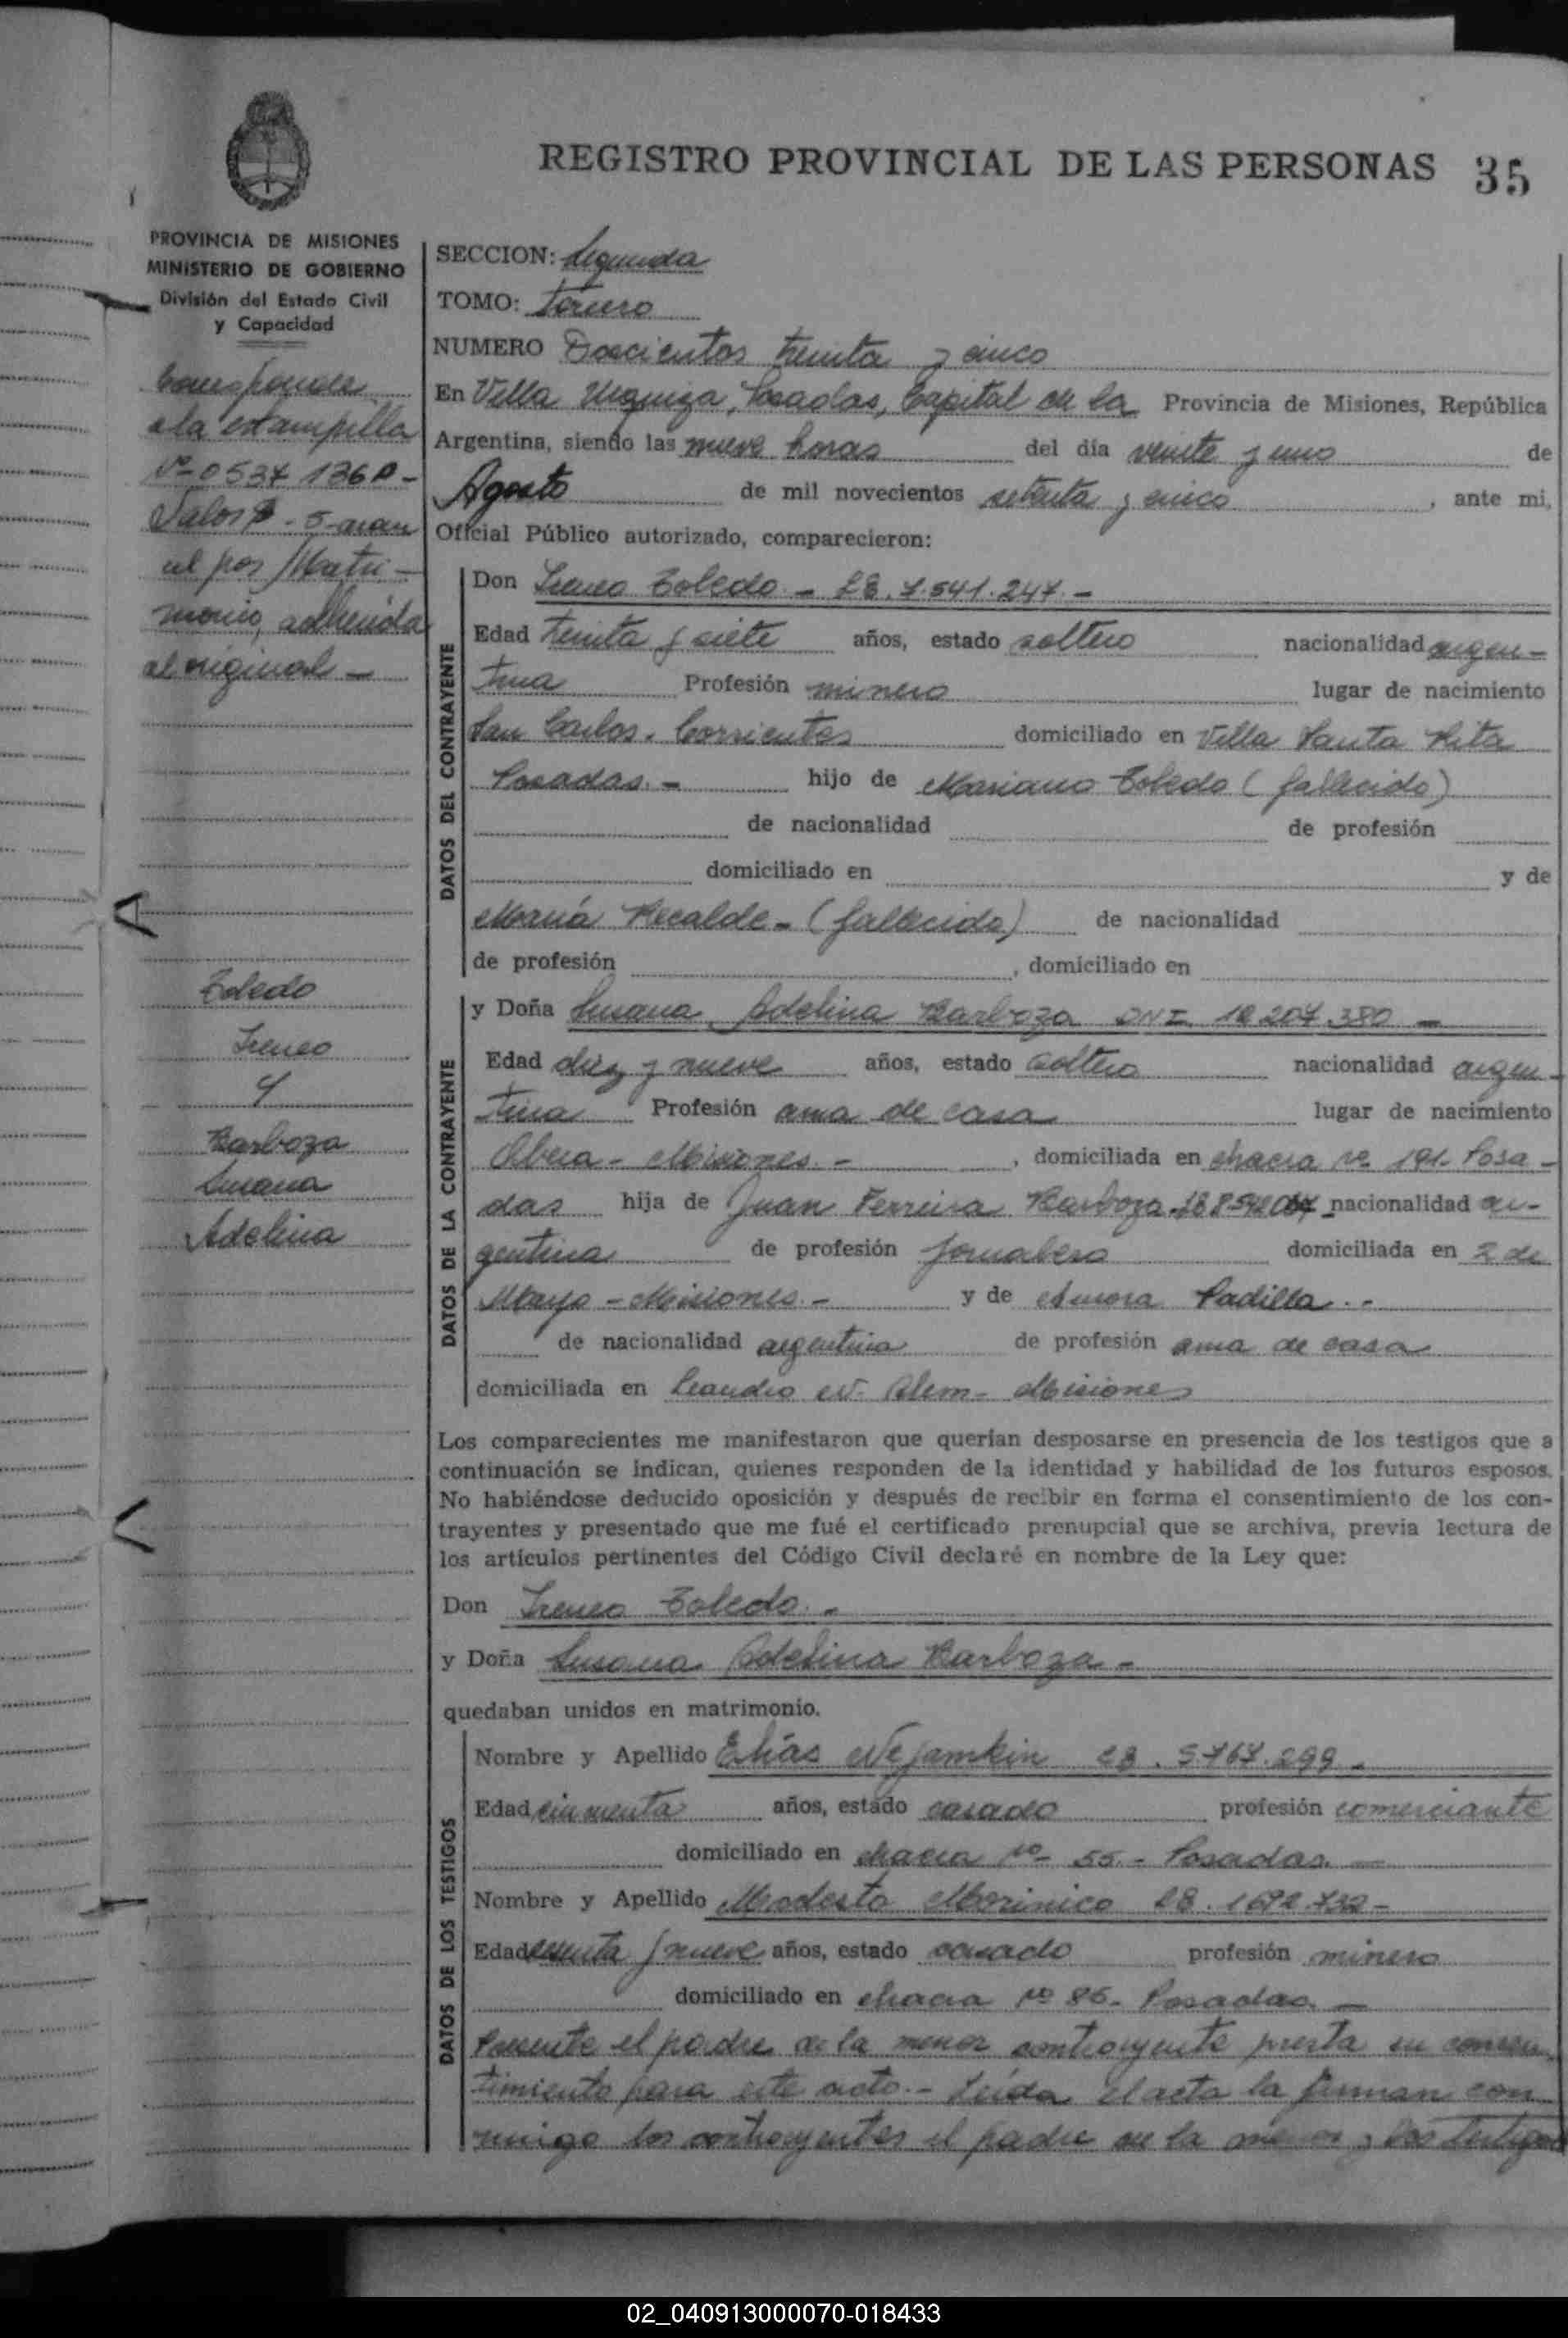 REGISTRO PROVINCIAL DE LAS PERSONAS 35
PROVINCIA DE MISIONES
MINISTERIO DE GOBIERNO
División del Estado Civil
y Capacidad
Corresponde
a la estampilla
Nº 0537 136
Valor $ - 5 - aran
cel por Matri-
monio, adherida
al original -
Toledo
Ireneo
y
Barboza
Susana
Adelina
SECCION: Segunda
TOMO: Tercero
NUMERO Doscientos treinta y cinco
En Villa Urquiza, Posadas, Capital de la Provincia de Misiones, República
Argentina, siendo las nueve horas del día veinte y uno de
Agosto de mil novecientos setenta y cinco, ante mi,
Oficial Público autorizado, comparecieron:
DATOS DEL CONTRAYENTE
Don Ireneo Toledo - LE. 7.541.247. -
Edad treinta y siete años, estado soltero nacionalidad argen-
tina Profesión minero lugar de nacimiento
San Carlos. Corrientes domiciliado en Villa Santa Rita
Posadas. - hijo de Mariano Toledo (fallecido)
de nacionalidad de profesión
domiciliado en y de
María Recalde - (fallecida) de nacionalidad
de profesión , domiciliado en
DATOS DE LA CONTRAYENTE
y Doña Susana Adelina Barboza DNI 12 207.380 -
Edad diez y nueve años, estado soltera nacionalidad argen-
tina Profesión ama de casa lugar de nacimiento
Obera - Misiones. - , domiciliada en chacra nº 191 - Posa-
das hija de Juan Ferreira Barboza nacionalidad ar-
gentina de profesión jornalero domiciliada en 2 de
Mayo - Misiones. - y de Amora Padilla. -
de nacionalidad argentina de profesión ama de casa
domiciliada en Leandro N. Alem - Misiones
Los comparecientes me manifestaron que querían desposarse en presencia de los testigos que a
continuación se indican, quienes responden de la identidad y habilidad de los futuros esposos.
No habiéndose deducido oposición y después de recibir en forma el consentimiento de los con-
trayentes y presentado que me fué el certificado prenupcial que se archiva, previa lectura de
los artículos pertinentes del Código Civil declaré en nombre de la Ley que:
Don Ireneo Toledo. -
y Doña Susana Adelina Barboza -
quedaban unidos en matrimonio.
DATOS DE LOS TESTIGOS
Nombre y Apellido Elías Nejamkin LE. 5.767.299 -
Edad cincuenta años, estado casado profesión comerciante
domiciliado en chacra nº 55. - Posadas. -
Nombre y Apellido Modesto Morinico LE. 1692.732 -
Edad sesenta y nueve años, estado casado profesión minero
domiciliado en chacra nº 86 - Posadas. -
Presente el padre de la menor contrayente presta su consen-
timiento para este acto. - Leída el acta la firman con
migo los contrayentes el padre de la menor y los testigos
02_040913000070-018433